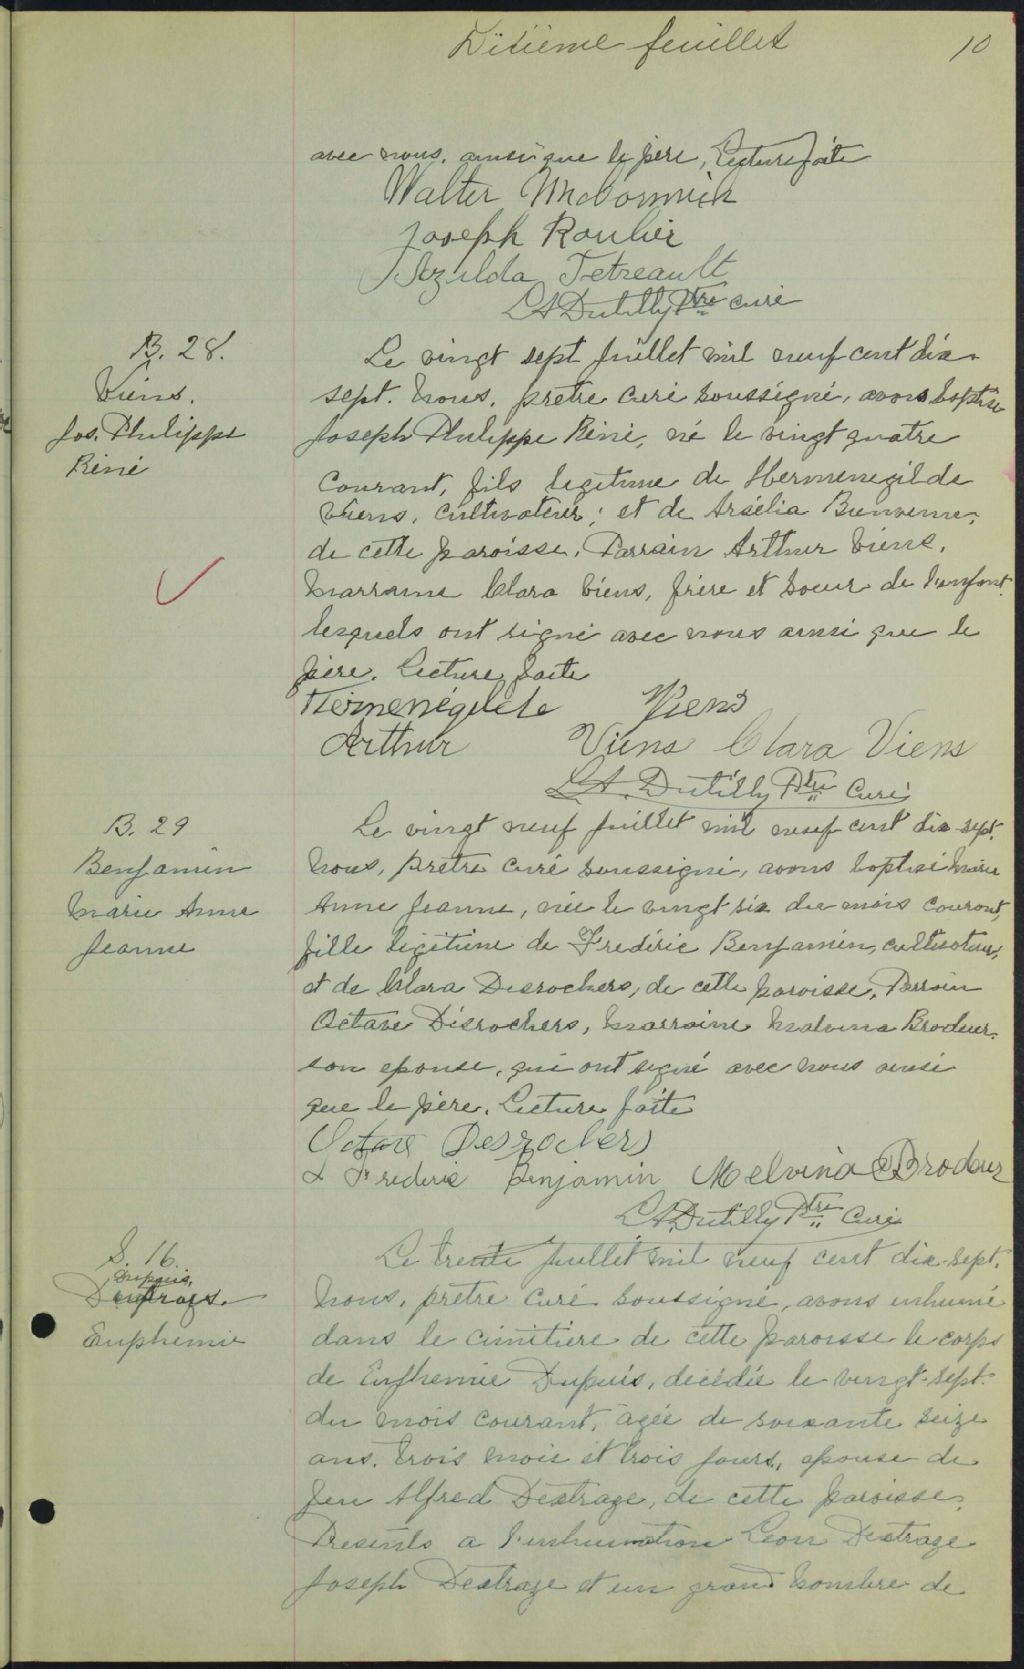 Dixième feuillet
10
avec nous, ainsi que le père, Lecture faite
Walter McCormick
Joseph Roulier
Azilda Tetreault
LA Dutilly Ptre curé
B. 28.
Viens.
Jos. Philippe
Réné
Le vingt sept juillet mil neuf cent dix-
sept. Nous, prêtre curé soussigné, avons baptisé
Joseph Philippe Réné, né le vingt quatre
courant, fils légitime de Hermenegilde
Viens, cultivateur; et de Arsélia Bienvenue,
de cette paroisse. Parrain Arthur Viens,
marraine Clara Viens, frère et soeur de l'enfant
lesquels ont signé avec nous ainsi que le
père. Lecture faite
Hermenégilde Viens
Arthur Viens Clara Viens
L.A. Dutilly Ptre Curé
B. 29
Benjamin
Marie Anne
Jeanne
Le vingt neuf juillet mil neuf cent dix-sept.
Nous, prêtre curé soussigné, avons baptisé Marie
Anne Jeanne, née le vingt six du mois courant,
fille légitime de Frederic Benjamin, cultivateur,
et de Clara Desrochers, de cette paroisse, Parrain
Octave Désrochers, marraine Malvina Brodeur.
son épouse, qui ont signé avec nous ainsi
que le père. Lecture faite
Octave Desrochers
Frederic Benjamin Melvina Brodeur
L.A. Dutilly Ptre Curé
S. 16.
Dupuis,
Euphemie
Le trente juillet mil neuf cent dix-sept.
Nous, prêtre curé soussigné, avons inhumé
dans le cimitière de cette paroisse le corps
de Euphemie Dupuis, décédée le vingt-sept
du mois courant, agée de soixante seize
ans, trois mois et trois jours, épouse de
feu Alfred Dextraze, de cette paroisse,
Presents a l'inhumation Léon Dextraze
Joseph Dextraze et un grand nombre de